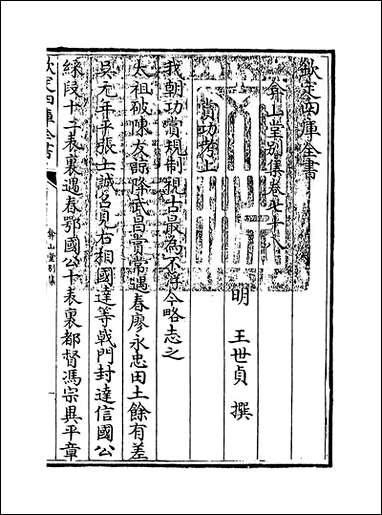 欽定四庫全書
弇山堂別集卷七十八
明 王世貞 撰
賞功考上
我朝功賞規制視古最為不薄今略志之
太祖破陳友諒降武昌賞常遇春廖永忠田土餘有差
吳元年平張士誠召見右相國達等戟門封達信國公
綵段十二表裏遇春鄂國公十表裏都督馮宗異平章
欽定四庫全書
弇山堂別集
一